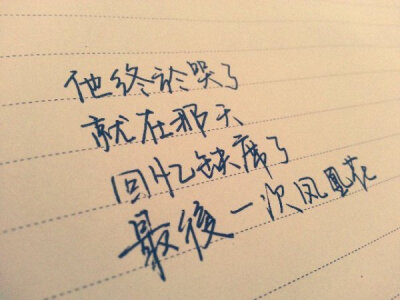 他终於哭了
就在那天
回忆缺席了
最後一次凤凰花